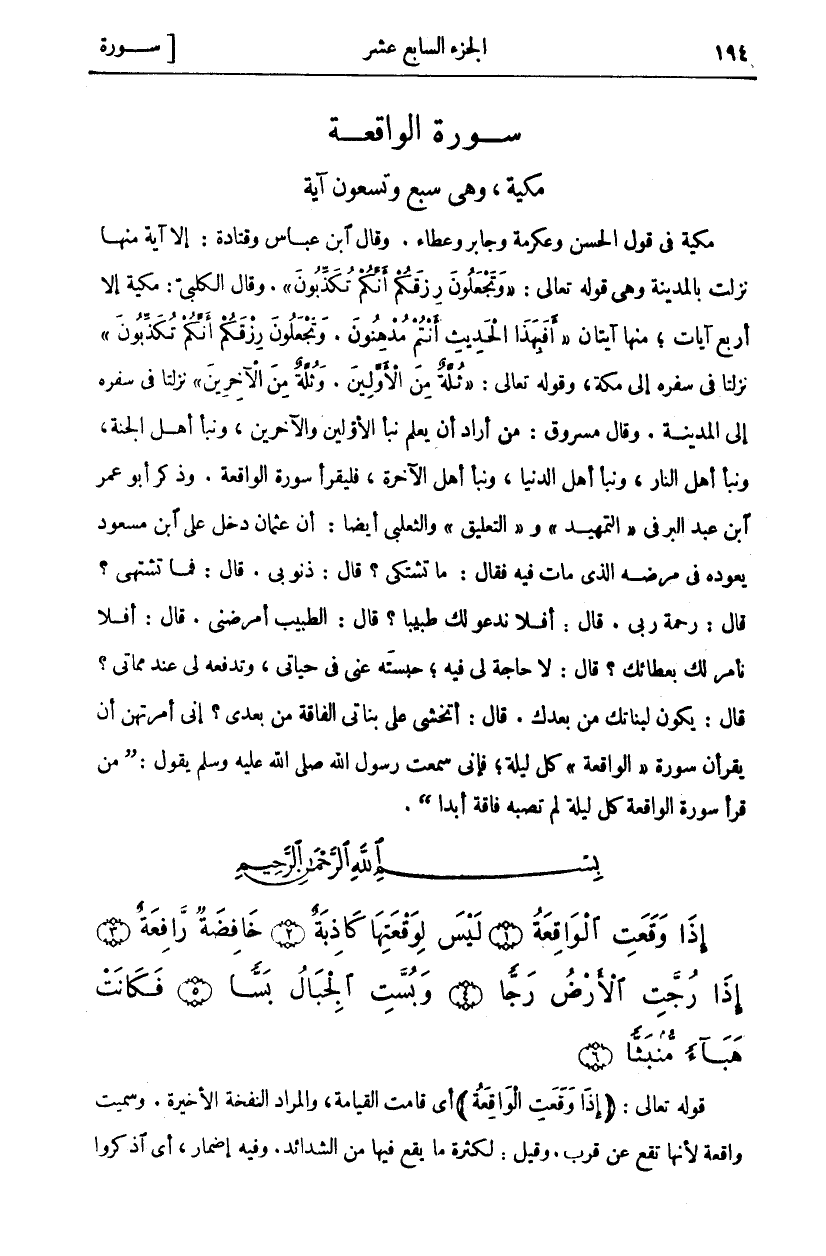 ١٩٤ الجزء السابع عشر [ ســورة
ســورة الواقعــة
مكية ، وهى سبع وتسعون آية
مكية فى قول الحسن وعكرمة وجابر وعطاء . وقال آبن عبـاس وقتادة : إلا آية منهـا
نزلت بالمدينة وهى قوله تعالى : « وَتَجْعَلُونَ رِزْقَكُمْ أَنَّكُمْ تُكَذِّبُونَ » . وقال الكلبىّ : مكية إلا
أربع آيات ؛ منها آيتان « أَفَبِهَذَا الْحَدِيثِ أَنْتُمْ مُدْهِنُونَ . وَتَجْعَلُونَ رِزْقَكُمْ أَنَّكُمْ تُكَذِّبُونَ »
نزلتا فى سفره إلى مكة ، وقوله تعالى : « ثُلَّةٌ مِنَ الْأَوَّلِينَ . وَثُلَّةٌ مِنَ الْآخِرِينَ » نزلتا فى سفره
إلى المدينـة . وقال مسروق : من أراد أن يعلم نبأ الأوّلين والآخرين ، ونبأ أهـل الجنة ،
ونبأ أهل النار ، ونبأ أهل الدنيا ، ونبأ أهل الآخرة ، فليقرأ سورة الواقعة . وذكر أبو عمر
آبن عبد البر فى « التمهيـد » و « التعليق » والثعلبى أيضا : أن عثمان دخل على آبن مسعود
يعوده فى مرضـه الذى مات فيه فقال : ما تشتكى ؟ قال : ذنوبى . قال : فمـا تشتهى ؟
قال : رحمة ربى . قال : أفـلا ندعو لك طبيبا ؟ قال : الطبيب أمرضنى . قال : أفـلا
نأمر لك بعطائك ؟ قال : لا حاجة لى فيه ؛ حبسته عنى فى حياتى ، وتدفعه لى عند مماتى ؟
قال : يكون لبناتك من بعدك . قال : أتخشى على بناتى الفاقة من بعدى ؟ إنى أمرتهن أن
يقرأن سورة « الواقعة » كل ليلة ؛ فإنى سمعت رسول الله صلى الله عليه وسلم يقول : ” من
قرأ سورة الواقعة كل ليلة لم تصبه فاقة أبدا “ .
بِسْــمِ ٱللَّهِ ٱلرَّحْمَٰنِ ٱلرَّحِيمِ
إِذَا وَقَعَتِ ٱلْوَاقِعَةُ ﴿١﴾ لَيْسَ لِوَقْعَتِهَا كَاذِبَةٌ ﴿٢﴾ خَافِضَةٌ رَّافِعَةٌ ﴿٣﴾
إِذَا رُجَّتِ ٱلْأَرْضُ رَجًّا ﴿٤﴾ وَبُسَّتِ ٱلْجِبَالُ بَسًّا ﴿٥﴾ فَكَانَتْ
هَبَآءً مُّنۢبَثًّا ﴿٦﴾
قوله تعالى : ﴿ إِذَا وَقَعَتِ الْوَاقِعَةُ ﴾ أى قامت القيامة ، والمراد النفخة الأخيرة . وسميت
واقعة لأنها تقع عن قرب . وقيل : لكثرة ما يقع فيها من الشدائد . وفيه إضمار ، أى آذكروا